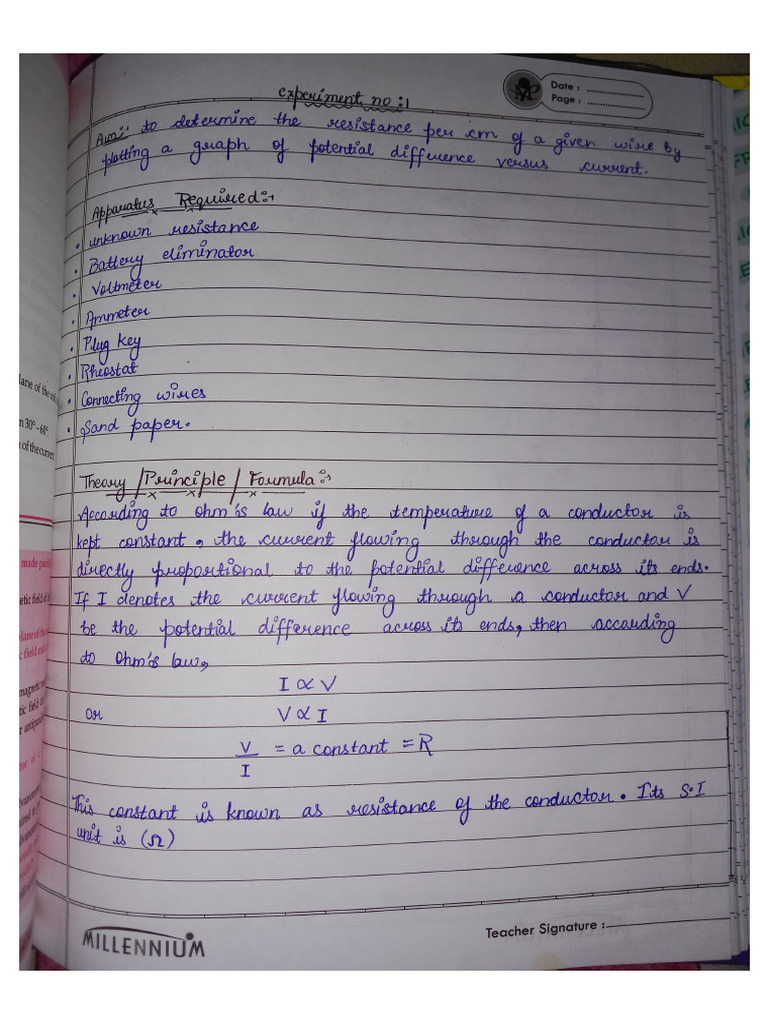 Experiment no :1
Date : ..................
Page : ..................
Aim:- to determine the resistance per cm of a given wire by
plotting a graph of potential difference versus current.
Apparatus Required:-
• unknown resistance
• Battery eliminator
• Voltmeter
• Ammeter
• Plug Key
• Rheostat
• Connecting wires
• Sand paper.
Theory / Principle / Formula:-
According to ohm's law if the temperature of a conductor is
kept constant, the current flowing through the conductor is
directly proportional to the potential difference across its ends.
If I denotes the current flowing through a conductor and V
be the potential difference across its ends, then according
to ohm's law,
I ∝ V
or V ∝ I
V/I = a constant = R
This constant is known as resistance of the conductor. Its S.I
unit is (Ω)
MILLENNIUM
Teacher Signature :
lane of the
n 30° - 60°.
of the current
made
etic field of
plane of the
c field and
magnetic
tic field